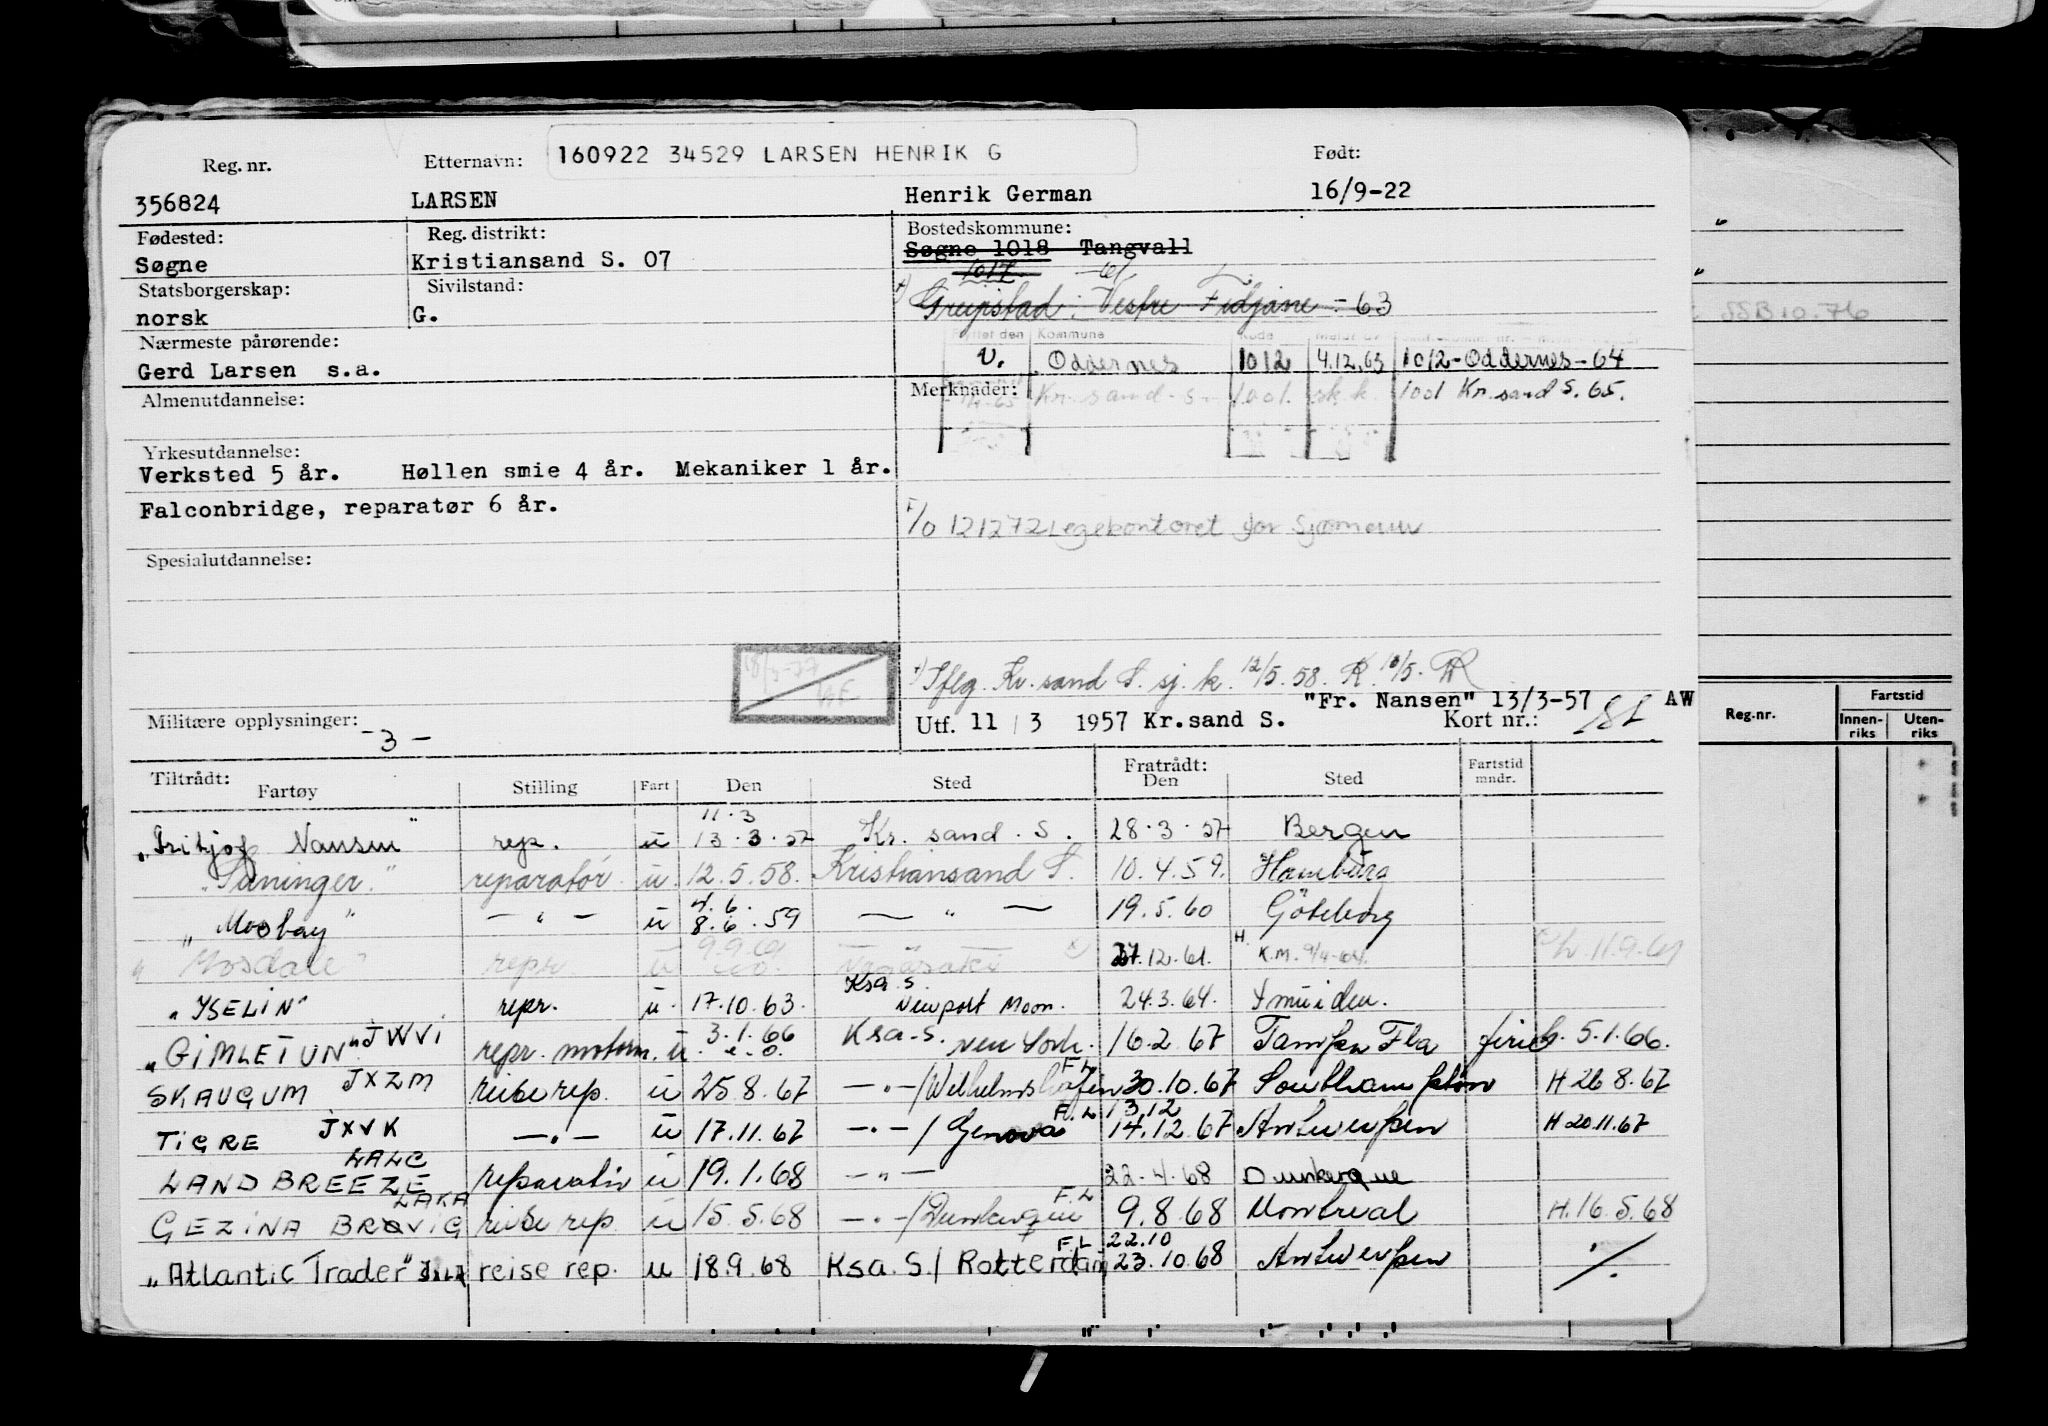 160922 34529 LARSEN HENRIK G
Reg. nr. Etternavn: Født:
356824 LARSEN Henrik German 16/9-22
Fødested: Reg. distrikt: Bostedskommune:
Søgne Kristiansand S. 07 Søgne 1018 Tangvall
1017
Statsborgerskap: Sivilstand:
norsk G. Greipstad: Vestre - 63
Nærmeste pårørende: Kommune
Gerd Larsen s.a. v. Oddernes 1012 4.12.63 1012-Oddernes-64
Almenutdannelse: Merknader: Kr.sand-S- 1001. 1001 Kr.sand S. 65.
Yrkesutdannelse:
Verksted 5 år. Høllen smie 4 år. Mekaniker 1 år.
Falconbridge, reparatør 6 år.
F/O 121272 Legekontoret for sjømenn
Spesialutdannelse:
Kr.sand S. sj. k. 12/5.58.
"Fr. Nansen" 13/3-57 AW
Militære opplysninger: -3- Utf. 11/3 1957 Kr.sand S. Kort nr.:
Tiltrådt: Fratrådt: Fartstid
Fartøy Stilling Fart Den Sted Den Sted mndr.
11.3
"Fritjof Nansen" rep. u 13.3.57 Kr. sand. S. 28.3.57 Bergen
reparatør u. 12.5.58. Kristiansand S. 10.4.59. Hamburg
4.6.
"Mosbay" — " — u 8.6.59 — " — 19.5.60 Göteborg
9.9.61
"Mosdale" repr u Nagasaki .12.61. K.M. 11.9.61
Ksa. S.
"ISELIN" repr. u. 17.10.63. Newport Mon. 24.3.64. Ymuiden.
3.1.66
"GIMLETUN" JWVI repr. u. Ksa-S. New York. 16.2.67 Tampa Fla 5.1.66.
F.L
SKAUGUM JXZM reise rep. u 25.8.67 — " —/Wilhelmshafen 30.10.67 Southampton H 26.8.67
F.L 13.12
TIGRE JXVK — " — u 17.11.67 — " —/Genova 14.12.67 Antwerpen H 20.11.67
LALC
LAND BREEZE reparatør u 19.1.68 — " — 22.4.68 Dunkerque
LAKA F.L
GEZINA BROVIG reise rep. u 15.5.68 — " —/Dunkerque 9.8.68 Montreal H.16.5.68
F.L 22.10
"Atlantic Trader" reise rep. u 18.9.68 Ksa. S/ Rotterdam 23.10.68 Antwerpen ./.
SSB 10.76
Reg.nr. Fartstid
Innen- Uten-
riks riks